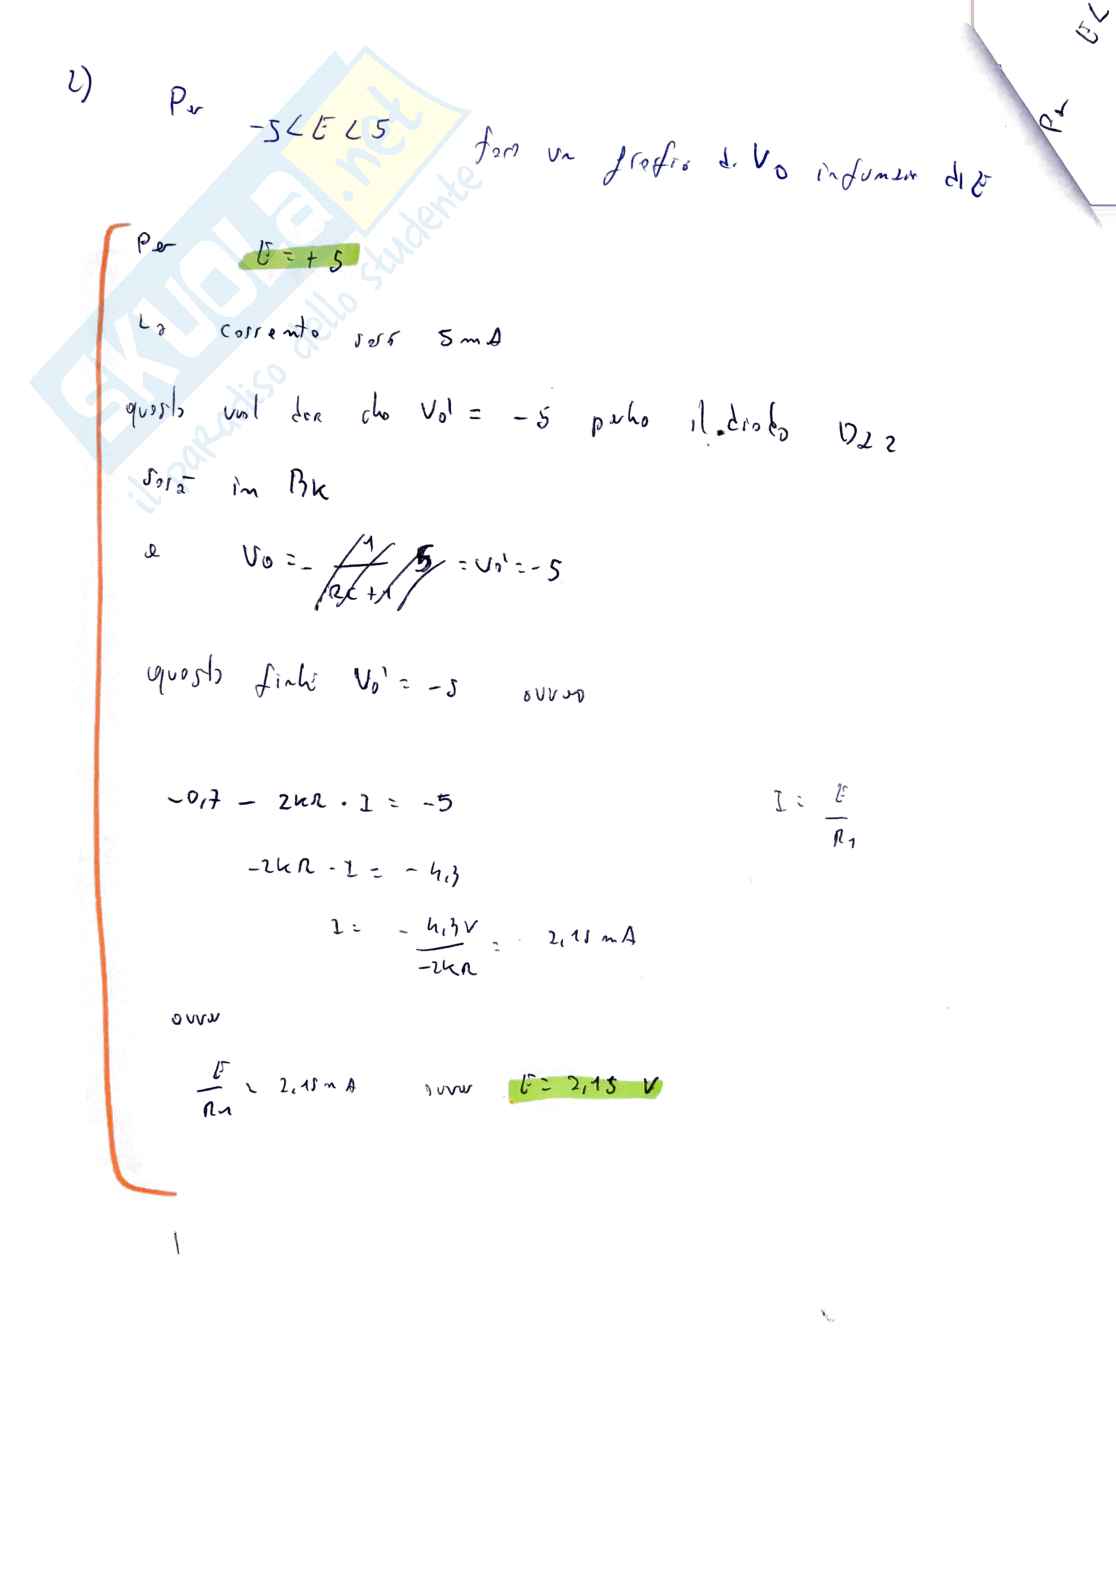 2) Per -5 < E < 5 fare un grafico di Vo in funzione di E
Per E = + 5
La corrente sarà 5 mA
questo vuol dire che Vo' = - 5 perche il diodo DZ2
sarà in BK
e Vo = - 1 / RC + 1 5 = Vo' = - 5
questo finché Vo' = - 5 ovvero
-0,7 - 2KΩ · I = -5 I = E / R1
-2KΩ · I = - 4,3
I = - 4,3V / -2KΩ = 2,15 mA
ovvero
E / R1 = 2,15 mA ovvero E = 2,15 V
Per
E <
SKUOLA.net
il paradiso dello studente